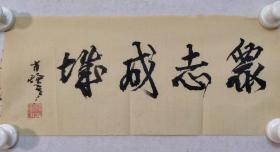 衆志成城